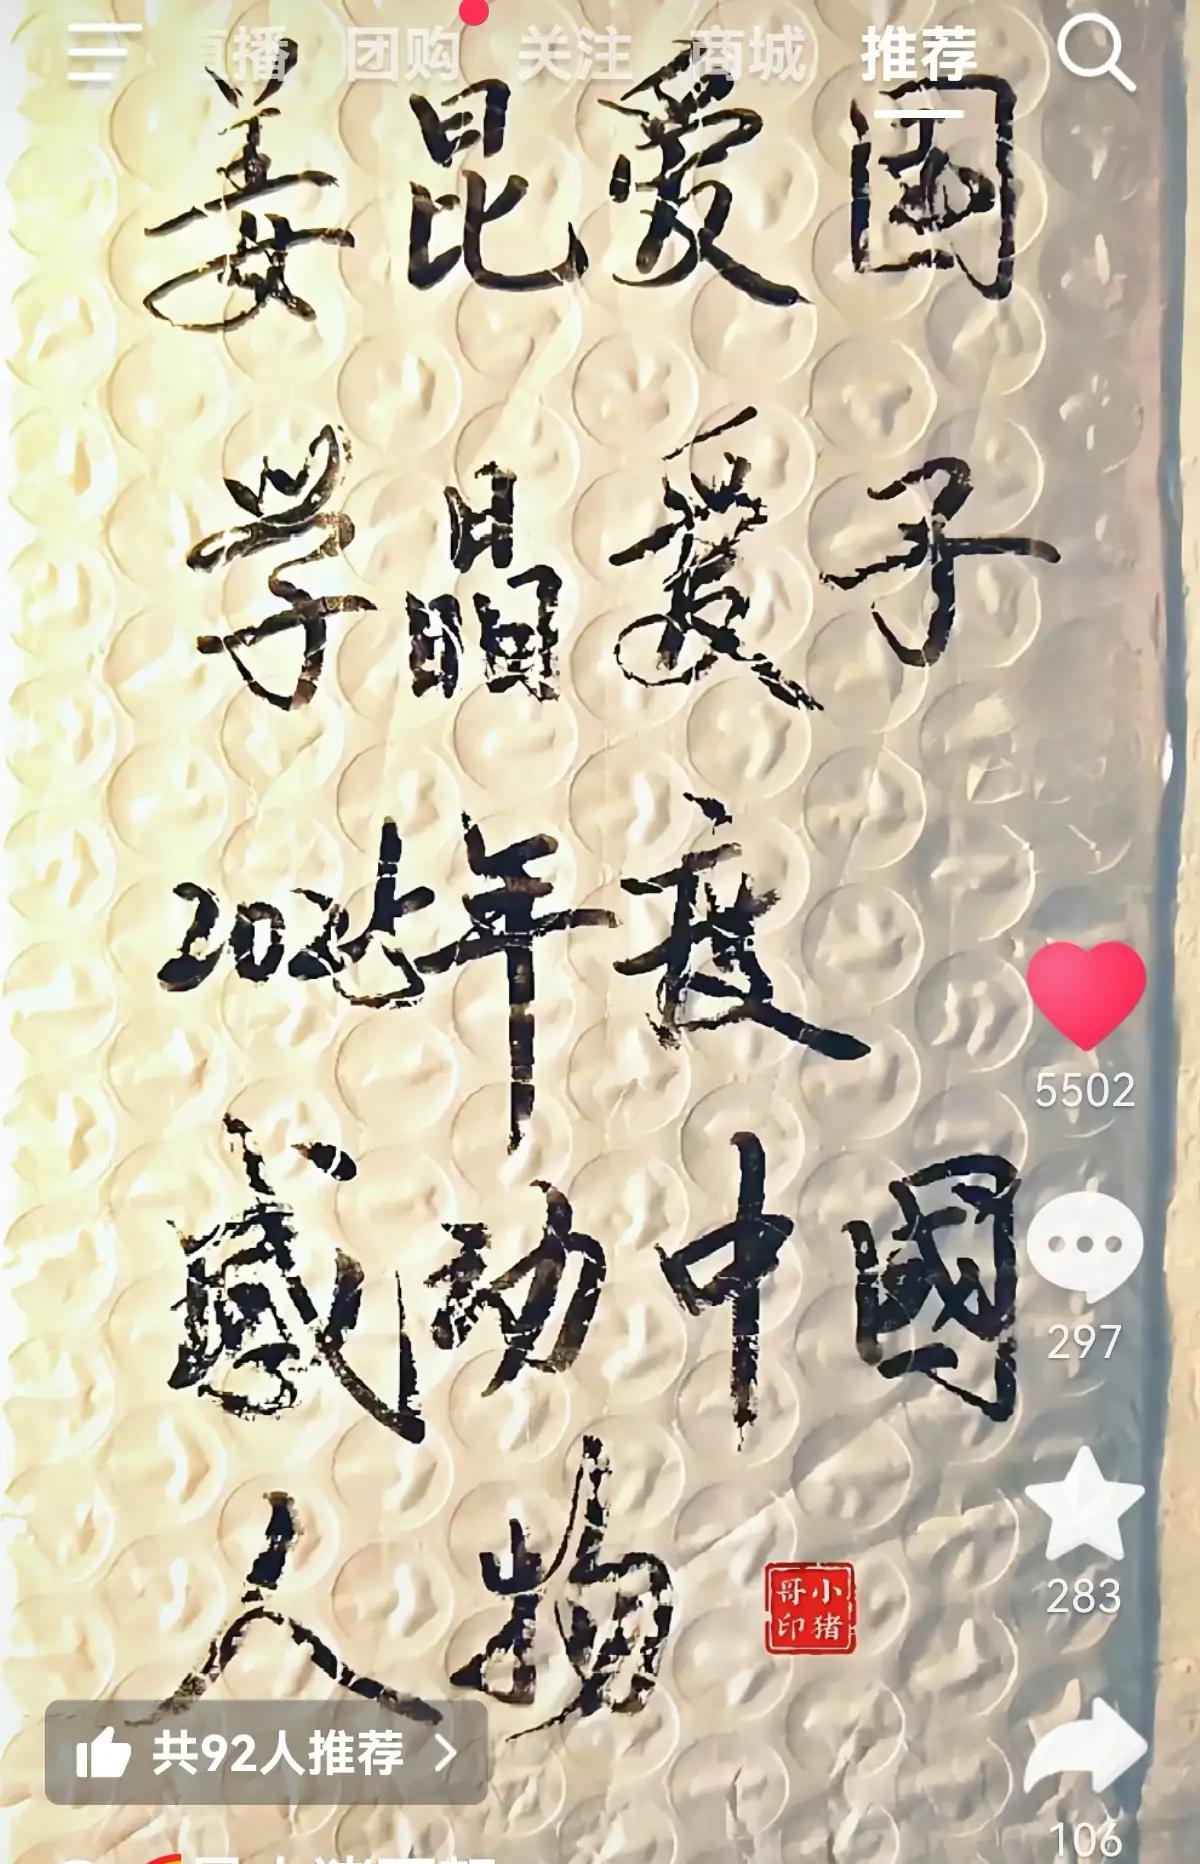 直播 团购 关注 商城 推荐
姜昆爱国
学晶爱子
2025年度
感动中國
人物
小猪
哥印
5502
297
283
106
共92人推荐